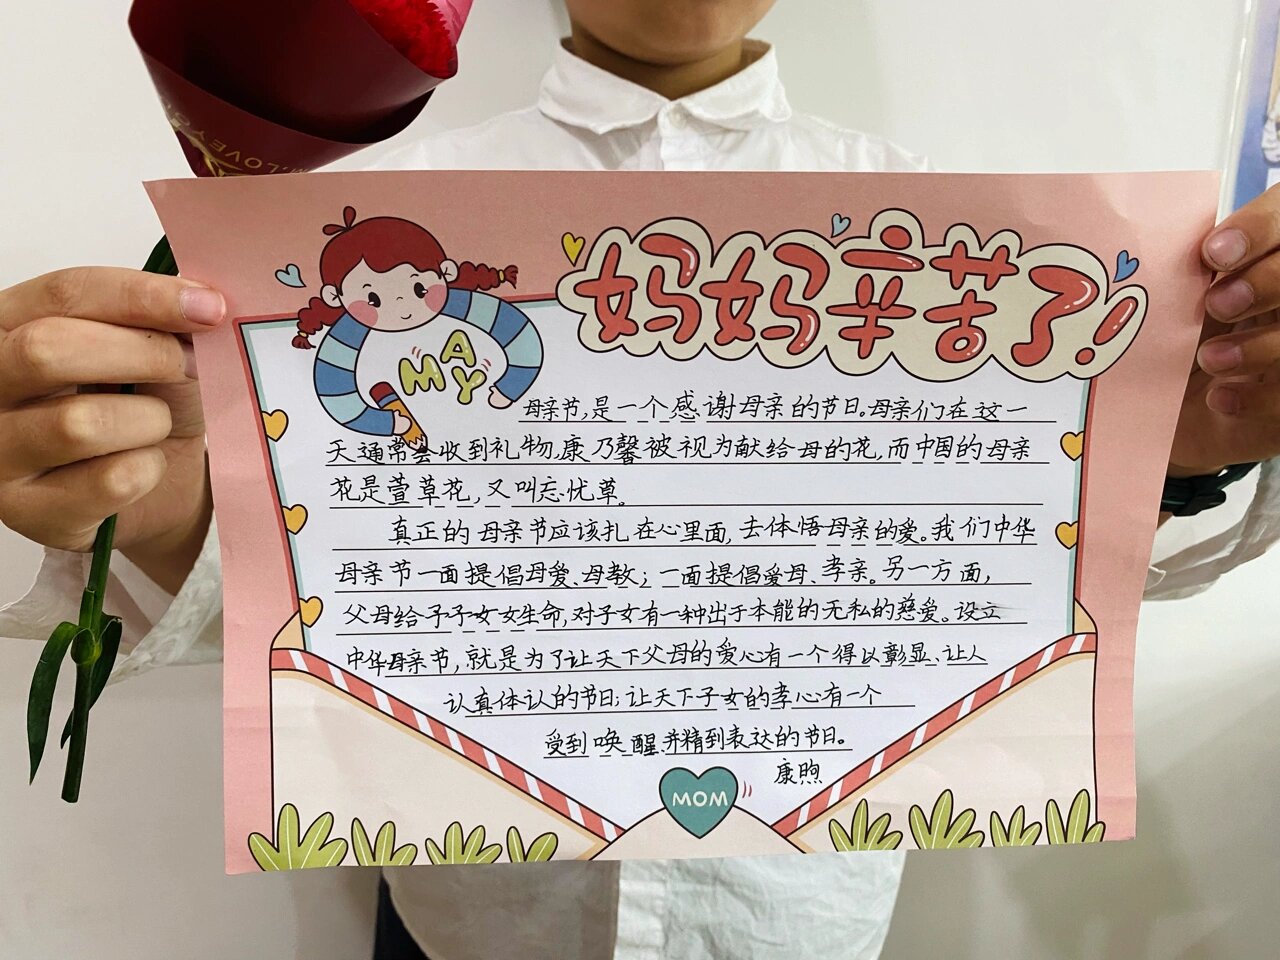 LOVE YO
妈妈辛苦了!
MAY
母亲节,是一个感谢母亲的节日。母亲们在这一
天通常会收到礼物,康乃馨被视为献给母的花,而中国的母亲
花是萱草花,又叫忘忧草。
真正的母亲节应该扎在心里面,去体悟母亲的爱。我们中华
母亲节一面提倡母爱、母教;一面提倡爱母、孝亲。另一方面,
父母给予子女女生命,对子女有一种出于本能的无私的慈爱。设立
中华母亲节,就是为了让天下父母的爱心有一个得以彰显、让人
认真体认的节日;让天下子女的孝心有一个
受到唤醒并精到表达的节日。
康煦
MOM